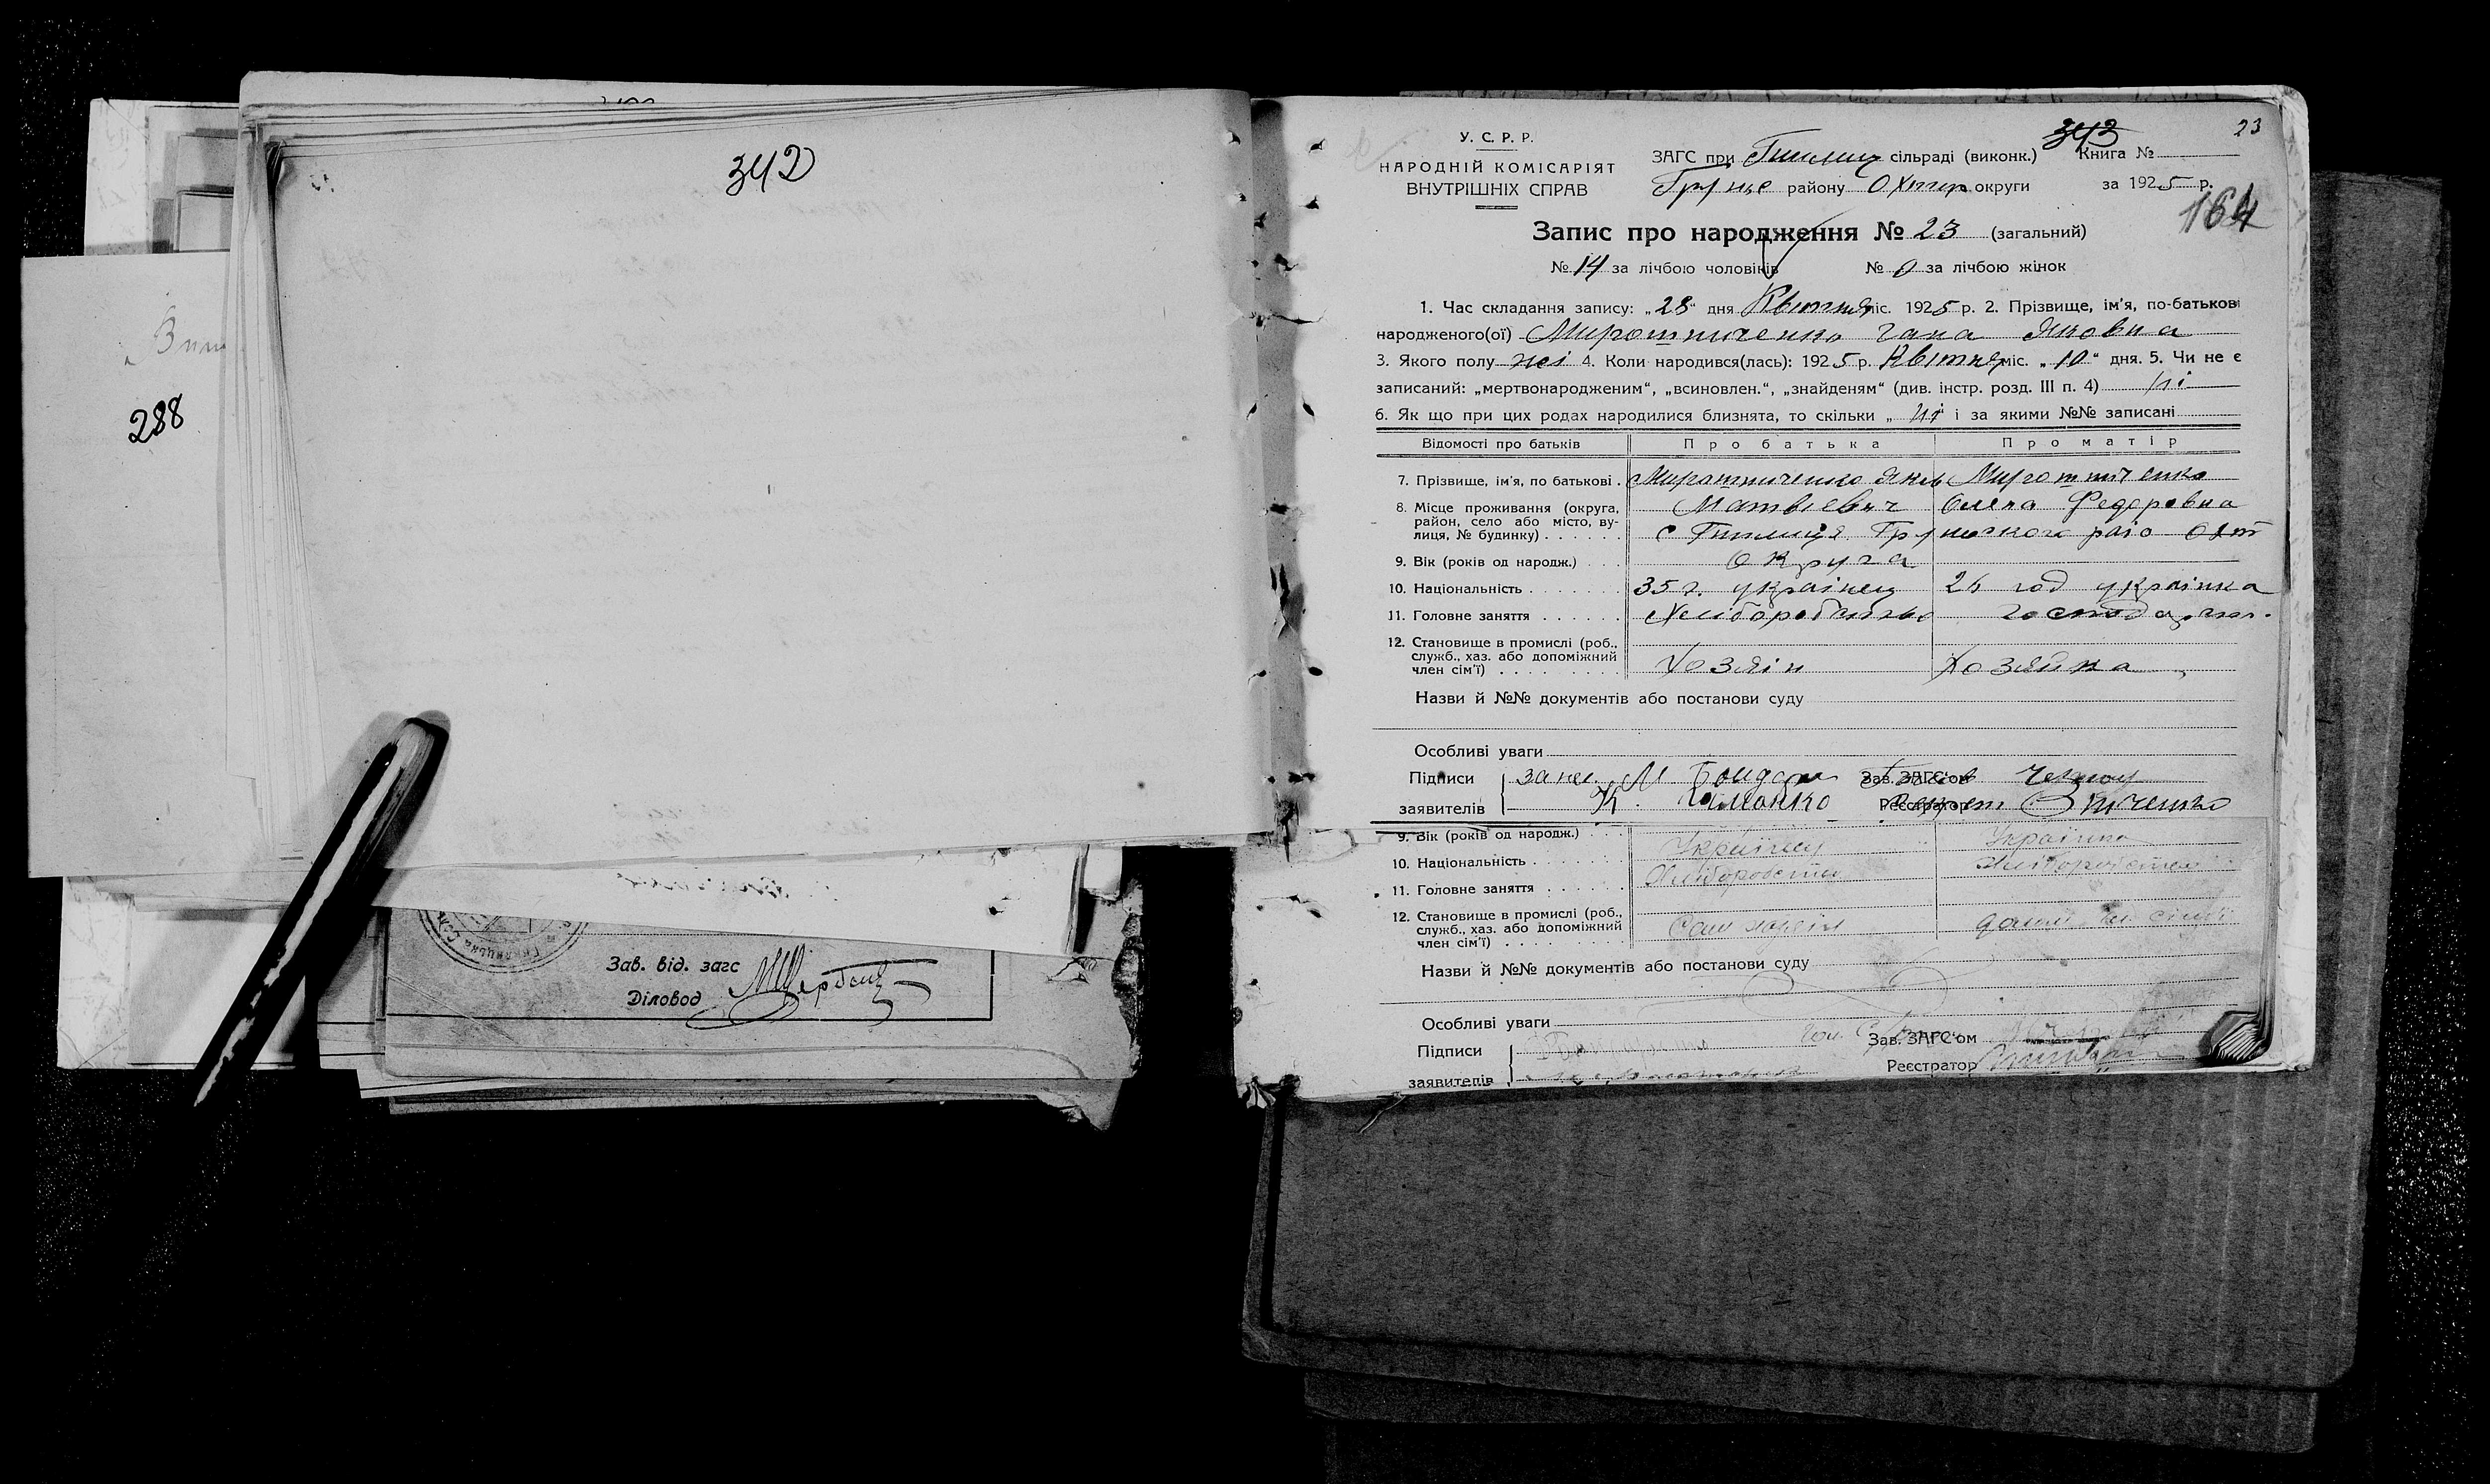 342
288
Зав. від. загс
Діловод
343
23
У. С. Р. Р.
НАРОДНІЙ КОМІСАРІЯТ
ВНУТРІШНІХ СПРАВ
ЗАГС при сільраді (виконк.) Книга №
району Охтир округи за 1925 р.
164
Запис про народження № 23 (загальний)
№ 14 за лічбою чоловіків № 0 за лічбою жінок
1. Час складання запису: „28“ дня Квітня міс. 1925 р. 2. Прізвище, ім'я, по-батькові
народженого(ої) Мирошниченко Гана Яковна
3. Якого полу жі 4. Коли народився(лась): 1925 р. Квітня міс. „10“ дня. 5. Чи не є
записаний: „мертвонародженим“, „всиновлен.“, „знайденям“ (див. інстр. розд. III п. 4) ні
6. Як що при цих родах народилися близнята, то скільки „ні“ і за якими №№ записані
Відомості про батьків Про батька Про матір
7. Прізвище, ім'я, по батькові . Мирошниченко Яков Мирошниченко
8. Місце проживання (округа, Матвіевич Олена Федоровна
район, село або місто, ву-
лиця, № будинку) . . . . . . с
9. Вік (років од народж.) . . . округа
10. Національність . . . . . . . 35 г. українец 26 год українка
11. Головне заняття . . . . . . Хліборобство господар.
12. Становище в промислі (роб.,
служб., хаз. або допоміжний
член сім'ї) . . . . . . . . . Хозяін Хозяйка
Назви й №№ документів або постанови суду
Особливі уваги
Підписи М Бондар Зав. ЗАГС'ом
заявителів К. Реєстратор
9. Вік (років од народж.) . . .
10. Національність . . . . . . Українец Українка
11. Головне заняття . . . . . . Хлиборобство
12. Становище в промислі (роб.,
служб., хаз. або допоміжний
член сім'ї) . . . . . . . . . Сам
Назви й №№ документів або постанови суду
Особливі уваги
Підписи Зав. ЗАГС'ом
заявителів Реєстратор